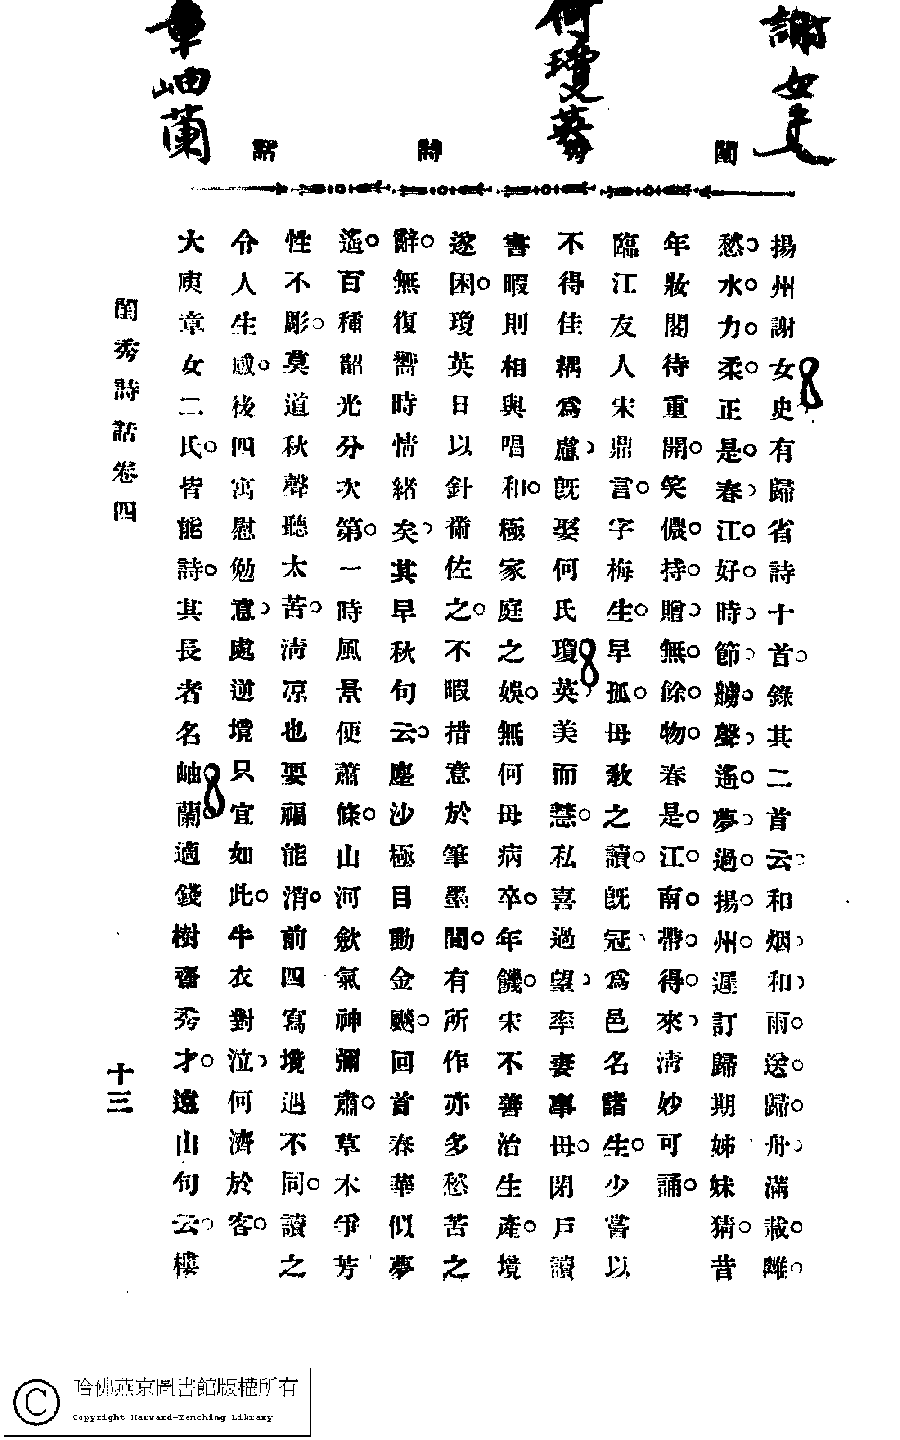 謝女史
何瓊英
章岫蘭
閨秀詩話
揚州謝女史有歸省詩十首。錄其二首云。和烟和雨。送歸舟。滿載離
愁。水。力。柔。正是。春。江。好。時。節。艣。聲。遙。夢。過。揚。州。遲訂歸期姊妹猜。昔
年妝閣待重開。笑儂。持。贈。無。餘。物。春是。江。南。帶。得。來。淸妙可誦。
臨江友人宋鼎言。字梅生。早孤。母敎之讀。旣冠、爲邑名諸生。少嘗以
不得佳耦爲慮、旣娶何氏瓊英、美而慧。私喜過望、率妻事母。閉戶讀
書暇則相與唱和。極家庭之娛。無何母病卒。年饑。宋不善治生產。境
遂困。瓊英日以針黹佐之。不暇措意於筆墨間。有所作亦多愁苦之
辭。無復嚮時情緒矣。其早秋句云。塵沙極目動金飈。回首春華似夢
遙。百種韶光分次第。一時風景便蕭條。山河斂氣神彌肅。草木爭芳
性不彫。莫道秋聲聽太苦。淸凉也要福能消。前四寫境遇不同。讀之
令人生感。後四寓慰勉意。處逆境只宜如此。牛衣對泣、何濟於客。
大庾章女二氏。皆能詩。其長者名岫蘭適錢樹齋秀才。遠山句云。樓
閨秀詩話卷四
十三
哈佛燕京圖書館版權所有
Copyright Harvard-Yenching Library